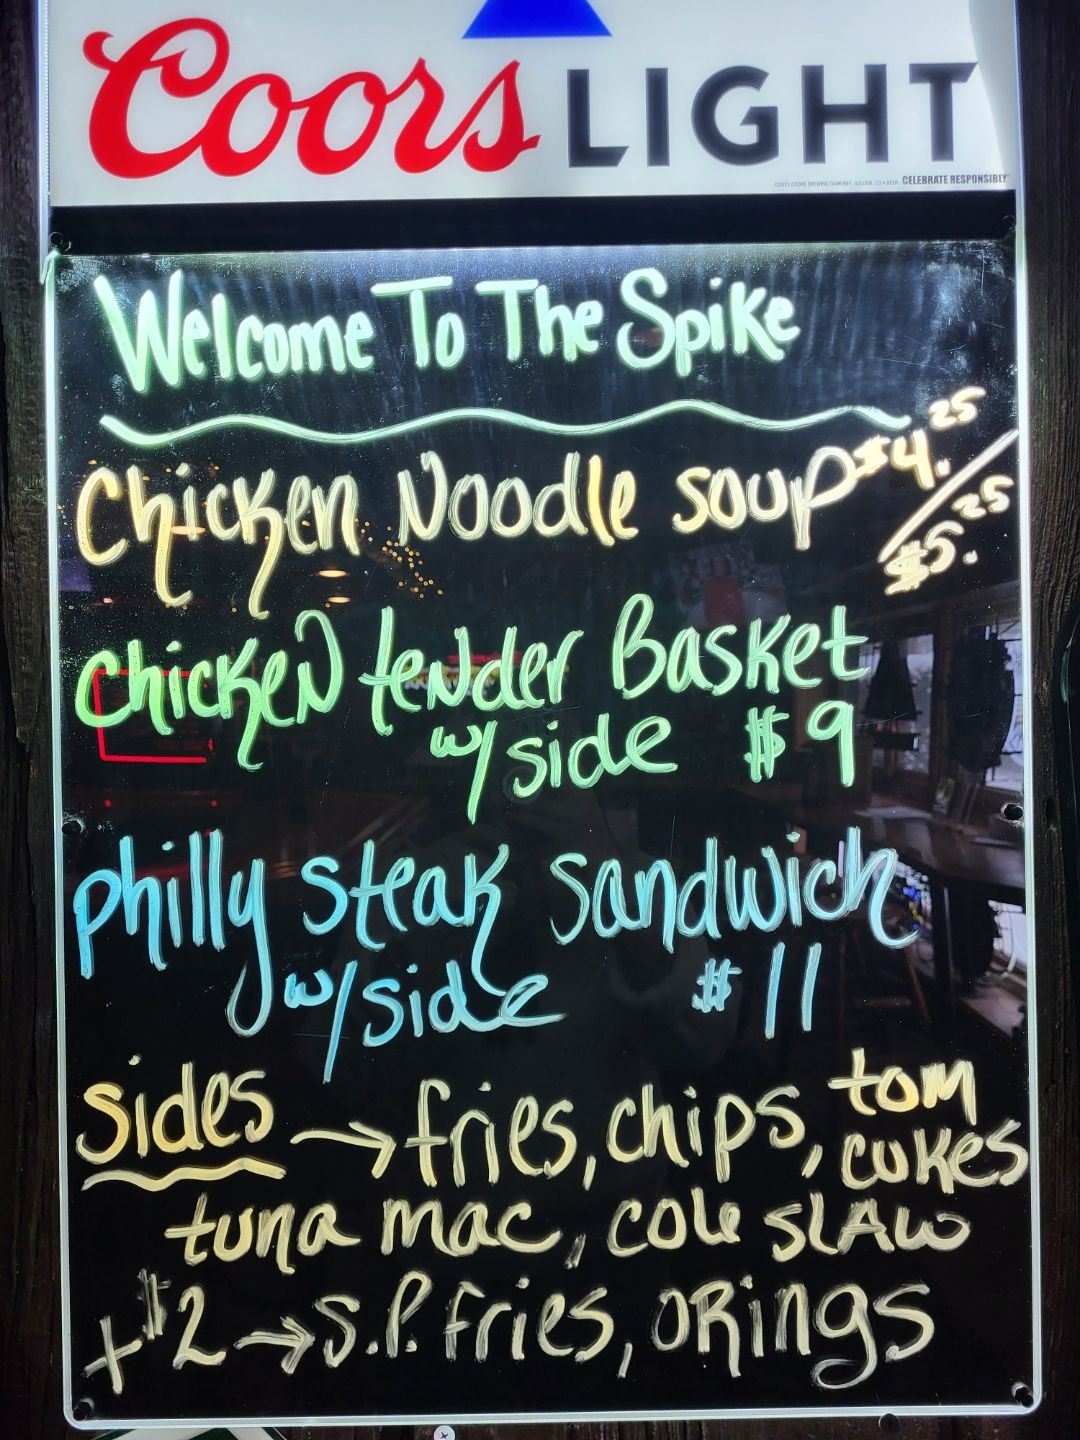 Coors LIGHT
CELEBRATE RESPONSIBLY
Welcome To The Spike
Chicken Noodle soup $4.25/$5.25
Chicken tender Basket
w/side $9
philly steak sandwich
w/side $11
sides → fries, chips, tom cukes
tuna mac, cole slaw
+$2 → S.P. fries, ORings